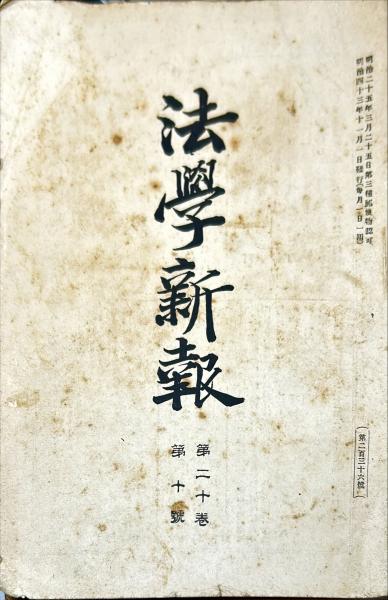 明治二十五年三月二十五日第三種郵便物認可
明治四十三年十一月一日發行(每月一日一回)
法學新報
第二十卷
第十號
(第二百三十六號)